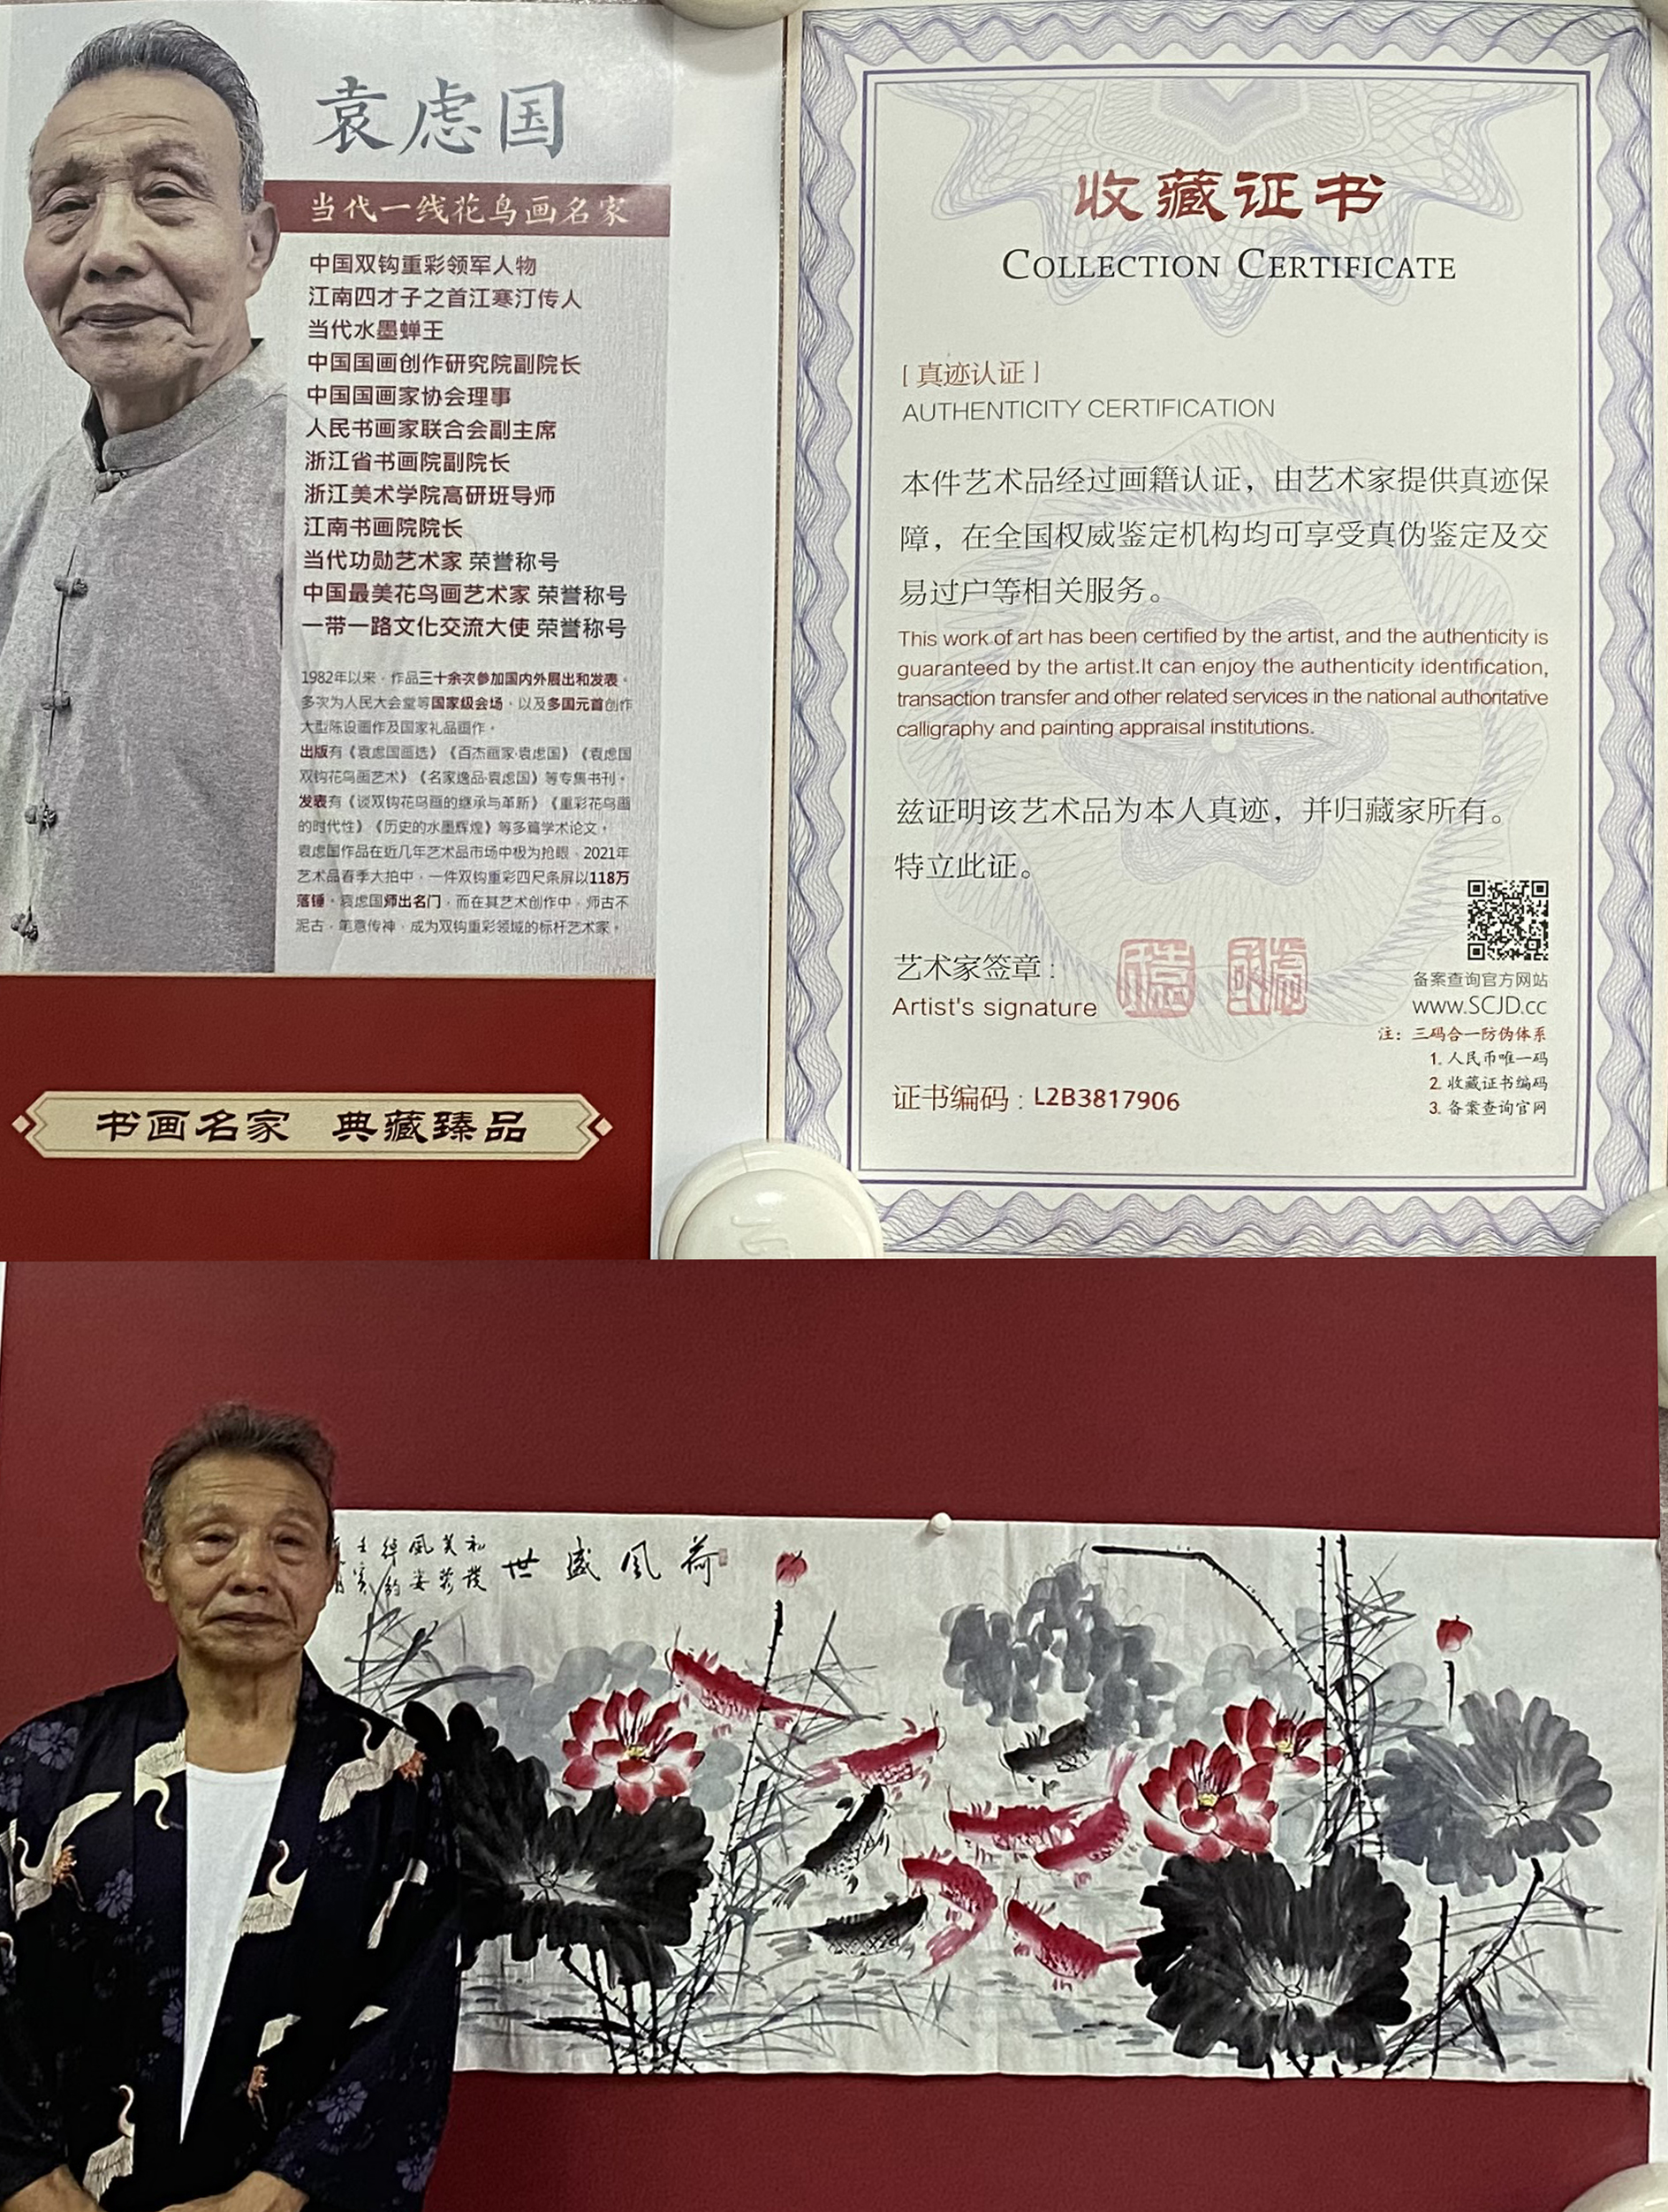 袁虑国
当代一线花鸟画名家
中国双钩重彩领军人物
江南四才子之首江寒汀传人
当代水墨蝉王
中国国画创作研究院副院长
中国国画家协会理事
人民书画家联合会副主席
浙江省书画院副院长
浙江美术学院高研班导师
江南书画院院长
当代功勋艺术家 荣誉称号
中国最美花鸟画艺术家 荣誉称号
一带一路文化交流大使 荣誉称号
1982年以来，作品三十余次参加国内外展出和发表。
多次为人民大会堂等国家级会场，以及多国元首创作
大型陈设画作及国家礼品画作。
出版有《袁虑国画选》《百杰画家·袁虑国》《袁虑国
双钩花鸟画艺术》《名家逸品·袁虑国》等专集书刊。
发表有《谈双钩花鸟画的继承与革新》《重彩花鸟画
的时代性》《历史的水墨辉煌》等多篇学术论文。
袁虑国作品在近几年艺术品市场中极为抢眼，2021年
艺术品春季大拍中，一件双钩重彩四尺条屏以118万
落锤。袁虑国师出名门，而在其艺术创作中，师古不
泥古，笔意传神，成为双钩重彩领域的标杆艺术家。
书画名家 典藏臻品
收藏证书
COLLECTION CERTIFICATE
[ 真迹认证 ]
AUTHENTICITY CERTIFICATION
本件艺术品经过画籍认证，由艺术家提供真迹保
障，在全国权威鉴定机构均可享受真伪鉴定及交
易过户等相关服务。
This work of art has been certified by the artist, and the authenticity is
guaranteed by the artist.It can enjoy the authenticity identification,
transaction transfer and other related services in the national authoritative
calligraphy and painting appraisal institutions.
兹证明该艺术品为本人真迹，并归藏家所有。
特立此证。
艺术家签章：
Artist's signature
备案查询官方网站
www.SCJD.cc
注：三码合一防伪体系
1. 人民币唯一码
2. 收藏证书编码
3. 备案查询官网
证书编码：L2B3817906
荷風盛世